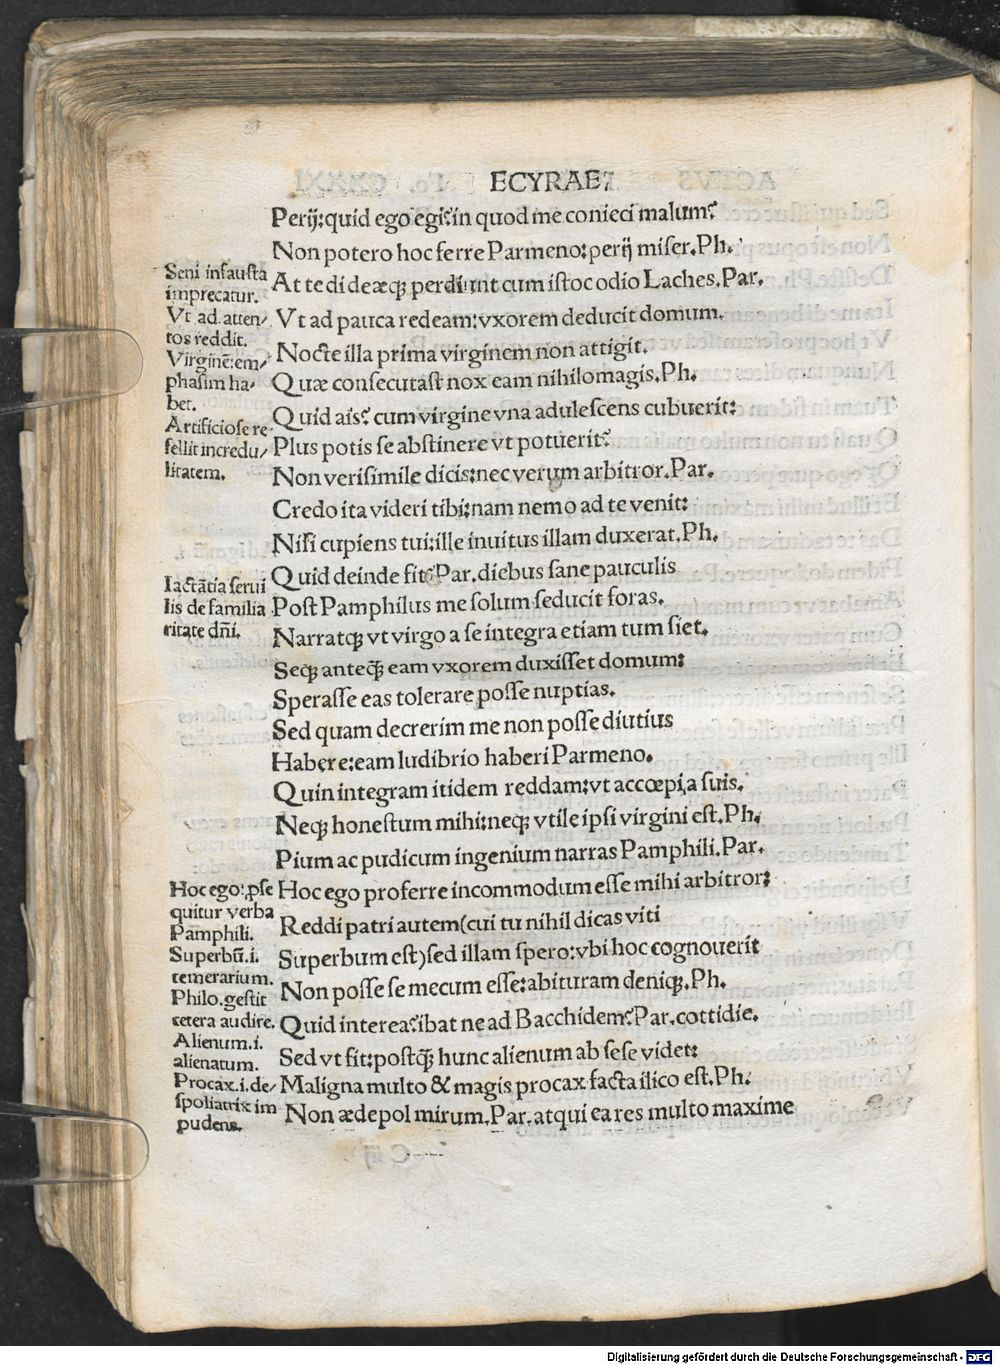 ECYRAE
Perij:quid ego egi?in quod me conieci malum?
Non potero hoc ferre Parmeno:perij miser.Ph.
At te di deæqꝫ perduint cum istoc odio Laches.Par.
Vt ad pauca redeam:vxorem deducit domum.
Nocte illa prima virginem non attigit.
Quæ consecutast nox eam nihilomagis.Ph.
Quid ais? cum virgine vna adulescens cubuerit:
Plus potis se abstinere vt potuerit?
Non verisimile dicis:nec verum arbitror.Par.
Credo ita videri tibi:nam nemo ad te venit:
Nisi cupiens tui:ille inuitus illam duxerat.Ph.
Quid deinde fit?Par.diebus sane pauculis
Post Pamphilus me solum seducit foras.
Narratqꝫ vt virgo a se integra etiam tum siet.
Seqꝫ anteqꝫ̃ eam vxorem duxisset domum:
Sperasse eas tolerare posse nuptias.
Sed quam decrerim me non posse diutius
Habere:eam ludibrio haberi Parmeno.
Quin integram itidem reddam:vt accœpi,a suis.
Neqꝫ honestum mihi:neqꝫ vtile ipsi virgini est.Ph.
Pium ac pudicum ingenium narras Pamphili.Par.
Hoc ego proferre incommodum esse mihi arbitror:
Reddi patri autem(cui tu nihil dicas viti
Superbum est)sed illam spero:vbi hoc cognouerit
Non posse se mecum esse:abituram deniqꝫ.Ph.
Quid interea?ibat ne ad Bacchidem?Par.cottidie.
Sed vt fit:postqꝫ̃ hunc alienum ab sese videt:
Maligna multo & magis procax facta ilico est.Ph.
Non ædepol mirum.Par.atqui ea res multo maxime
Seni infausta
imprecatur.
Vt ad atten/
tos reddit.
Virginẽ:em/
phasim ha/
bet.
Artificiose re
fellit incredu/
litatem.
Iactãtia serui
lis de familia
ritate dñi.
Hoc ego:ꝓse
quitur verba
Pamphili.
Superbũ.i.
temerarium.
Philo.gestit
cetera audire.
Alienum.i.
alienatum.
Procax.i.de/
spoliatrix im
pudens.
Digitalisierung gefördert durch die Deutsche Forschungsgemeinschaft - DFG